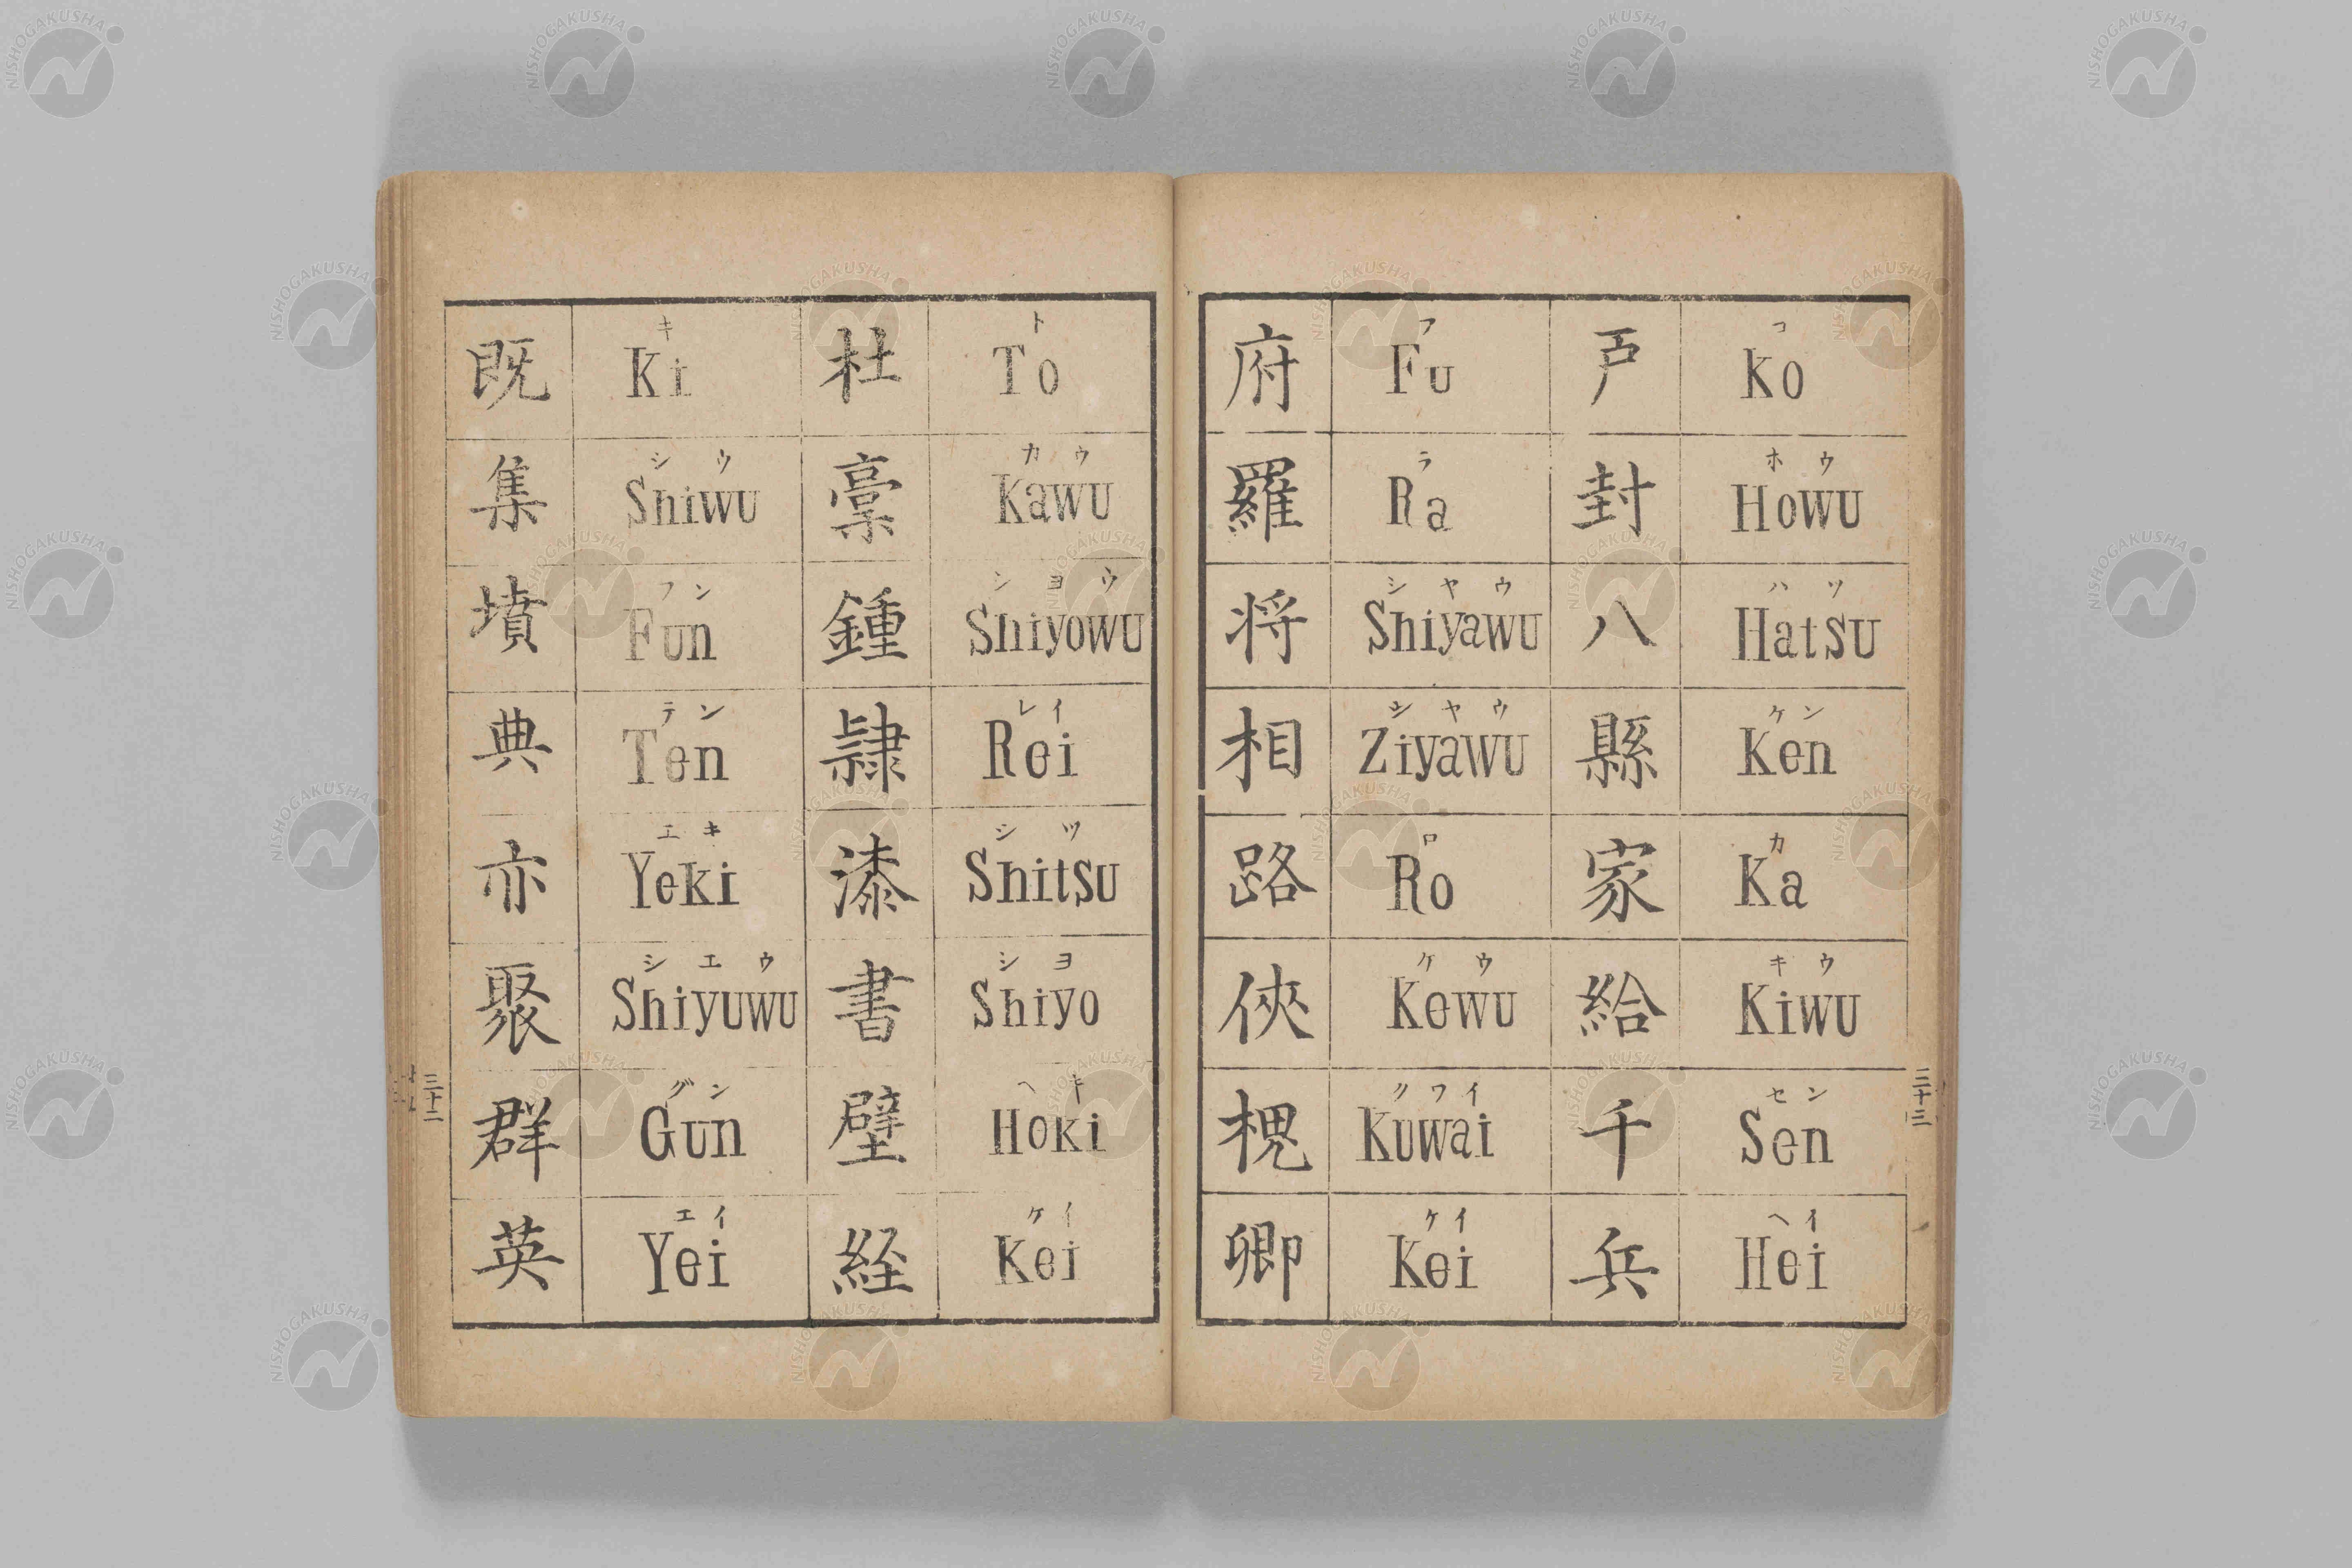 既 キ Ki
集 シウ Shiwu
墳 フン Fun
典 テン Ten
亦 エキ Yeki
聚 シエウ Shiyuwu
群 グン Gun
英 エイ Yei
杜 ト To
稾 カウ Kawu
鍾 シヨウ Shiyowu
隷 レイ Rei
漆 シツ Shitsu
書 シヨ Shiyo
壁 ヘキ Heki
経 ケイ Kei
三十二
府 フ Fu
羅 ラ Ra
将 シヤウ Shiyawu
相 シヤウ Ziyawu
路 ロ Ro
俠 ケウ Kewu
槐 クワイ Kuwai
卿 ケイ Kei
戸 コ Ko
封 ホウ Howu
八 ハツ Hatsu
縣 ケン Ken
家 カ Ka
給 キウ Kiwu
千 セン Sen
兵 ヘイ Hei
三十三
NISHOGAKUSHA